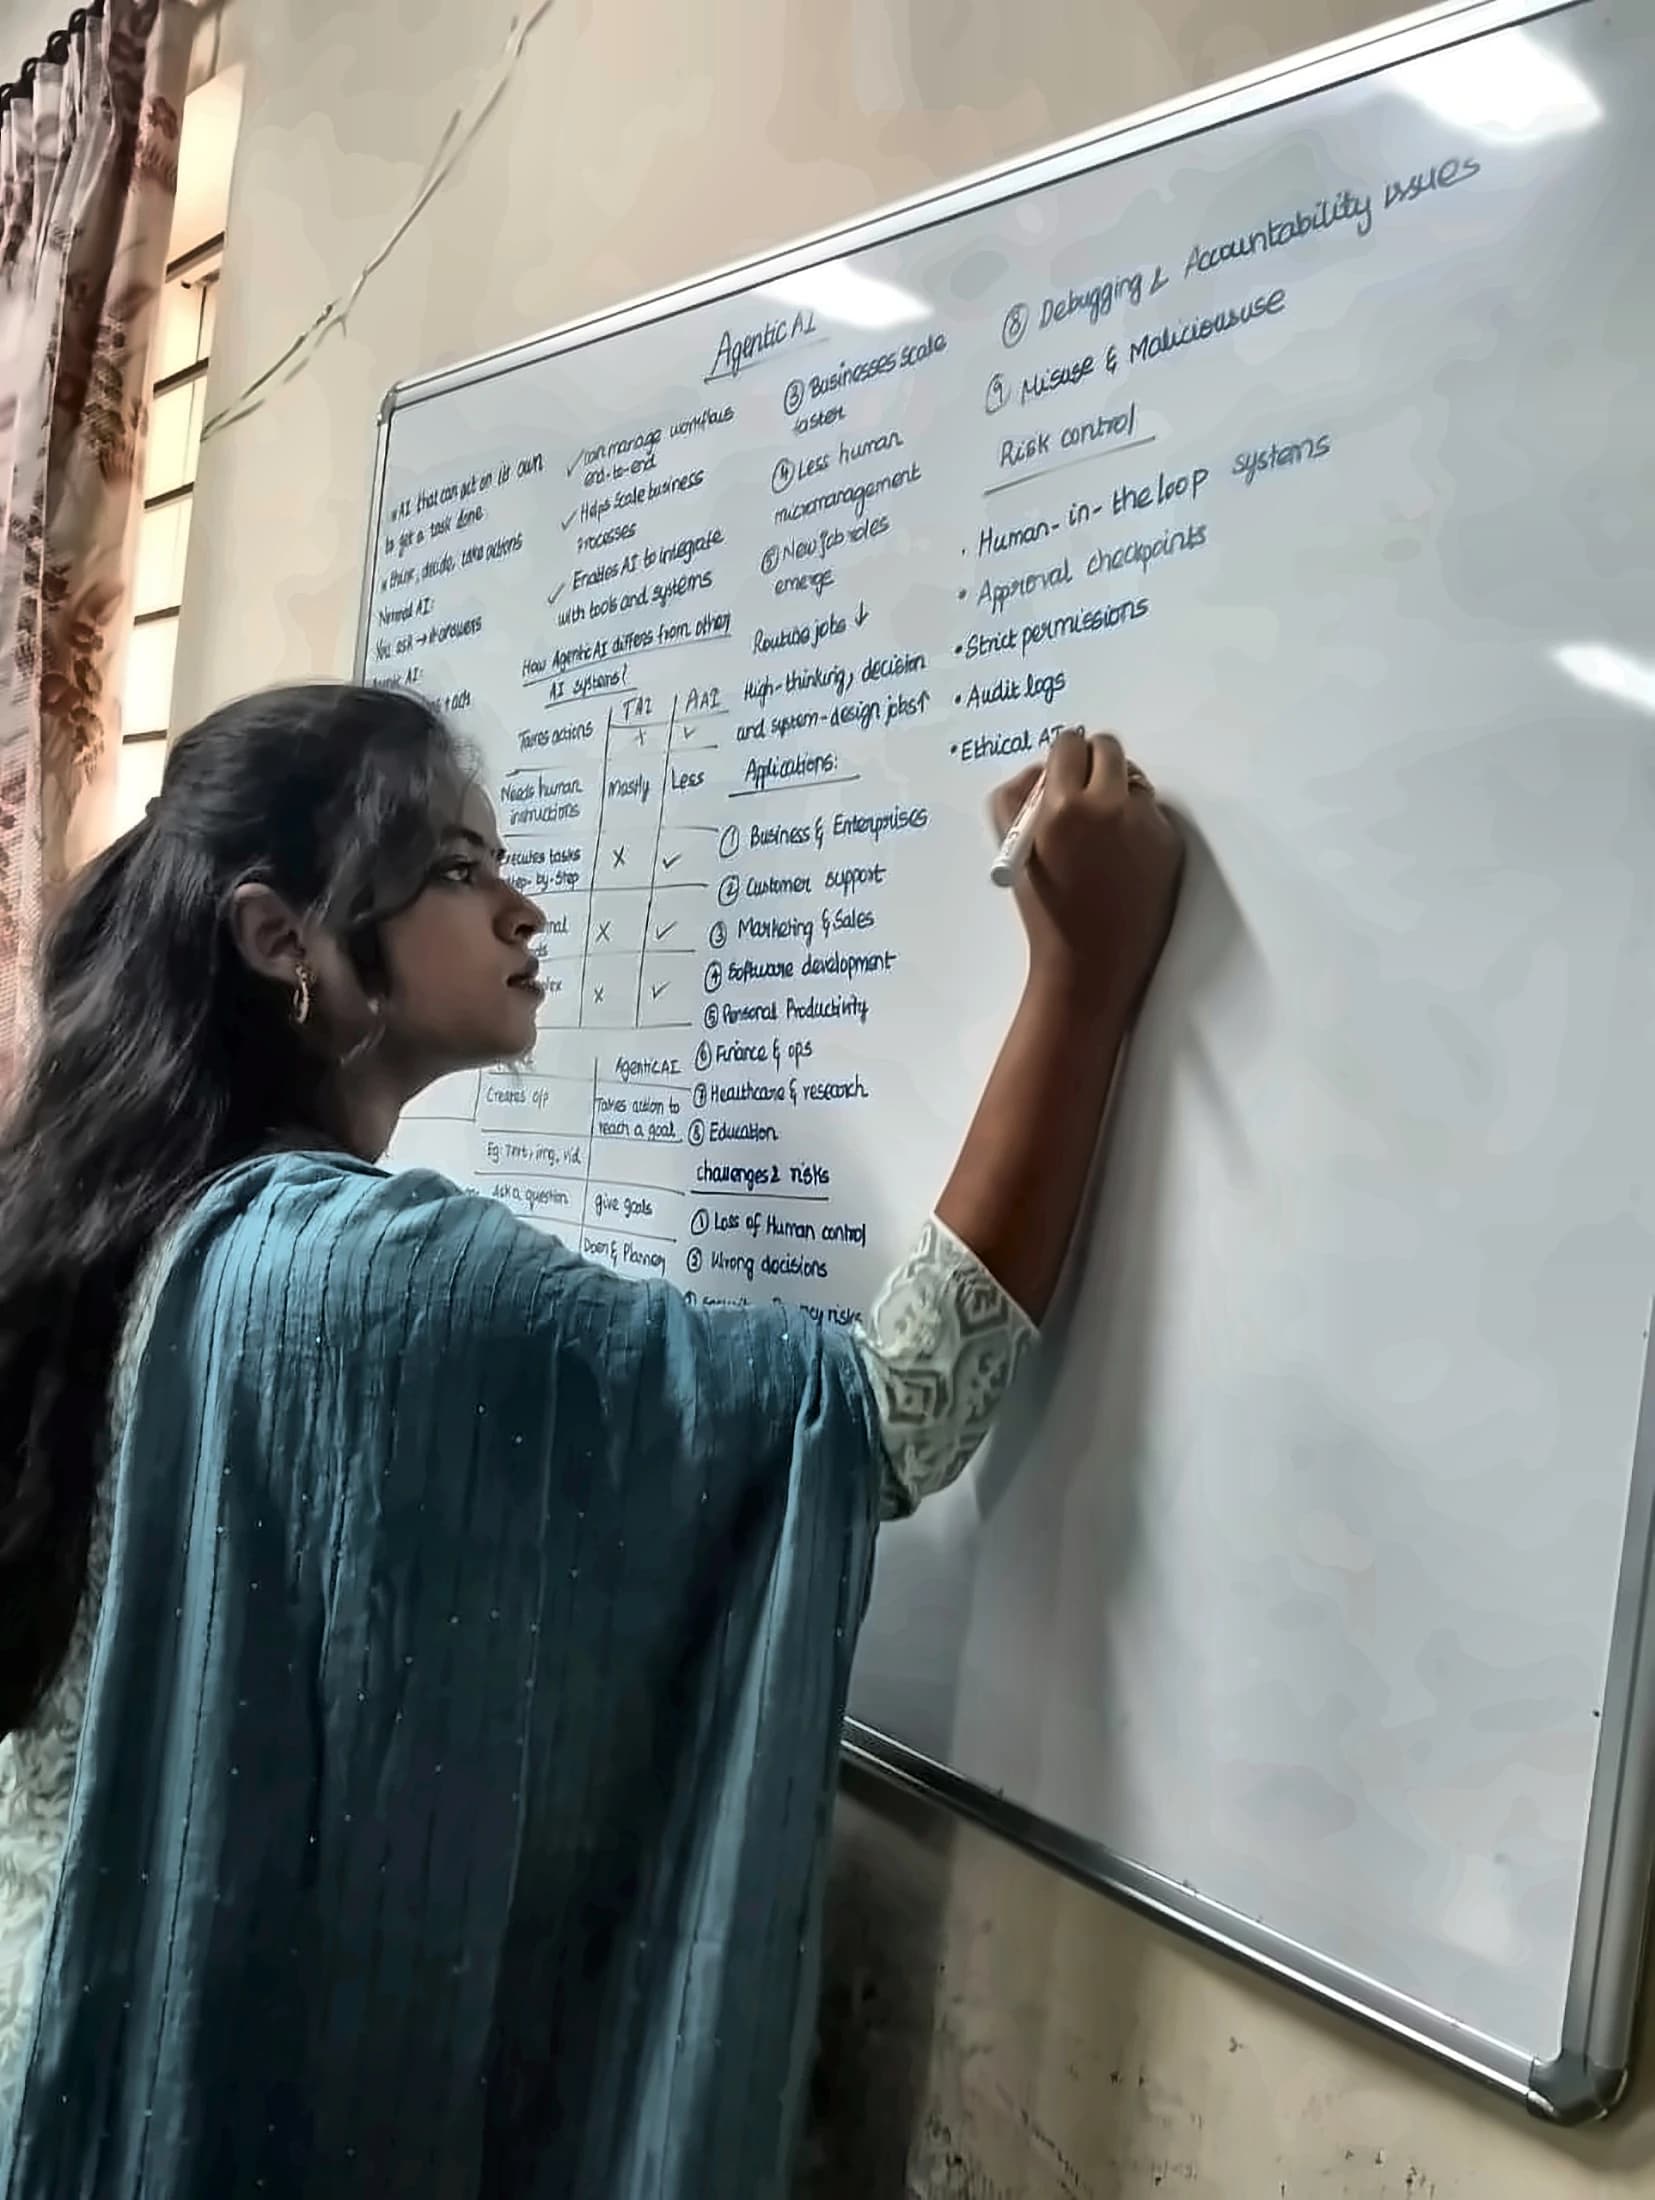 Agentic AI
AI that can act on its own
to get a task done
think, decide, take actions
Normal AI:
You ask → it answers
AI:
+ acts
✓ can manage workflows
end-to-end
✓ Helps scale business
processes
✓ Enables AI to integrate
with tools and systems
How Agentic AI differs from other
AI systems?
TAI AAI
Takes actions x ✓
Needs human
instructions Mostly Less
tasks
step-by-step X ✓
X ✓
x ✓
Agentic AI
Creates o/p Takes action to
reach a goal
Eg: Text, img, vid
Ask a question give goals
Doer & Planner
③ Businesses scale
faster
④ Less human
micromanagement
⑤ New job roles
emerge
Routine jobs ↓
High-thinking, decision
and system-design jobs↑
Applications:
① Business & Enterprises
② Customer support
③ Marketing & Sales
④ Software development
⑤ Personal Productivity
⑥ Finance & ops
⑦ Healthcare & research
⑧ Education
challenges & risks
① Loss of Human control
② Wrong decisions
risks
⑧ Debugging & Accountability issues
⑨ Misuse & Malicioususe
Risk control
• Human-in-the loop systems
• Approval checkpoints
• Strict permissions
• Audit logs
• Ethical AI